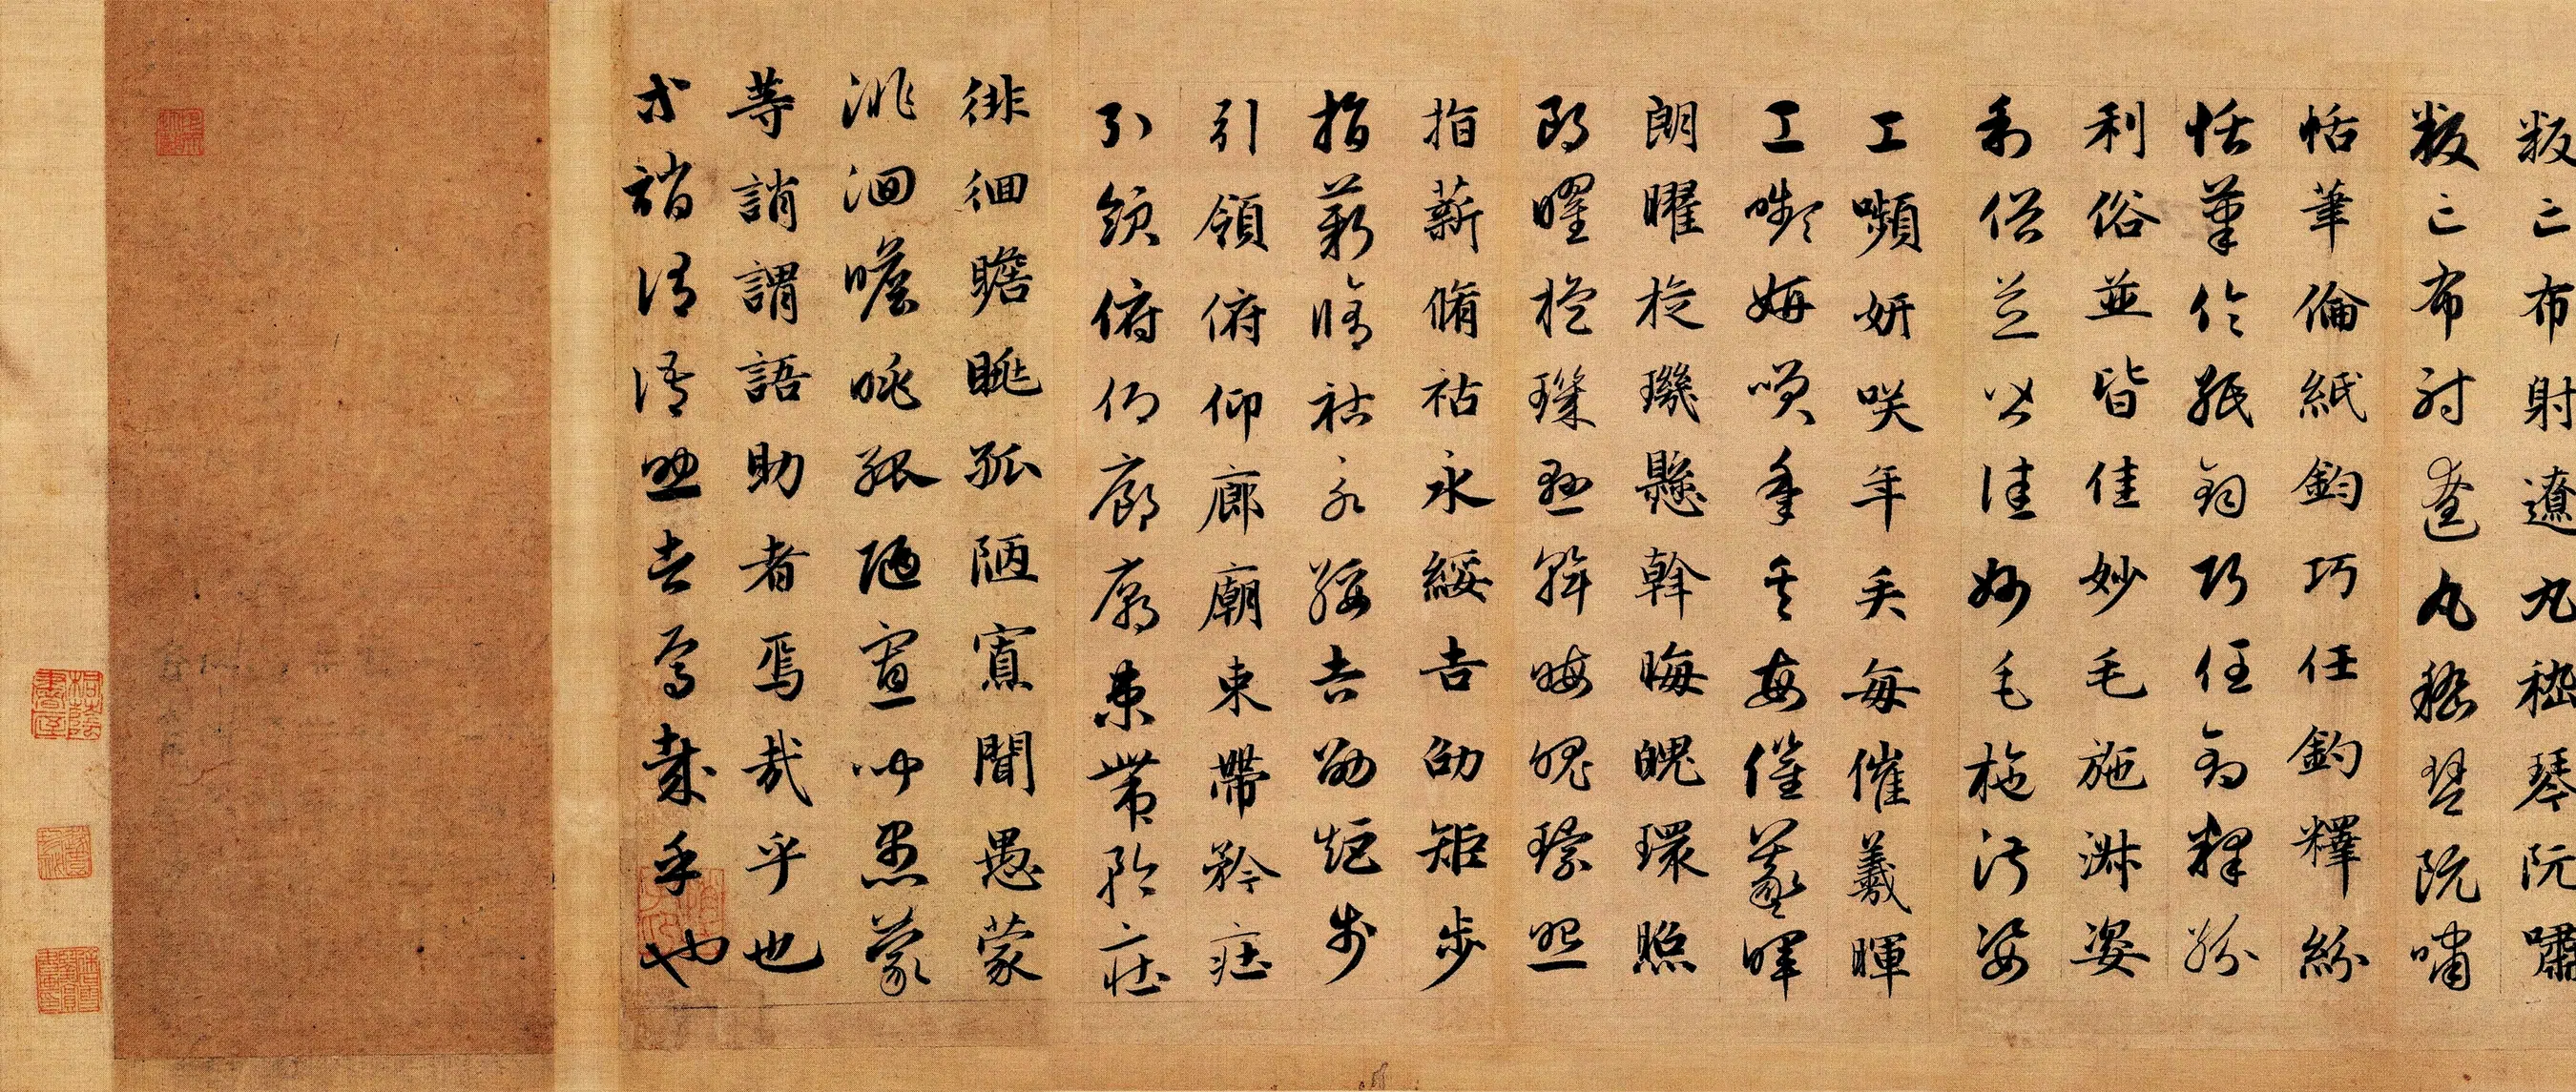 叛亡布射遼丸嵇琴阮嘯
叛亡布射遼丸嵇琴阮嘯
恬筆倫紙鈞巧任釣釋紛
恬筆倫紙鈞巧任釣釋紛
利俗並皆佳妙毛施淑姿
利俗並皆佳妙毛施淑姿
工嚬妍咲年矢每催羲暉
工嚬妍咲年矢每催羲暉
朗曜旋璣懸斡晦魄環照
朗曜旋璣懸斡晦魄環照
指薪脩祜永綏吉劭矩步
指薪脩祜永綏吉劭矩步
引領俯仰廊廟束帶矜莊
引領俯仰廊廟束帶矜莊
徘徊瞻眺孤陋寡聞愚蒙
徘徊瞻眺孤陋寡聞愚蒙
等誚謂語助者焉哉乎也
等誚謂語助者焉哉乎也